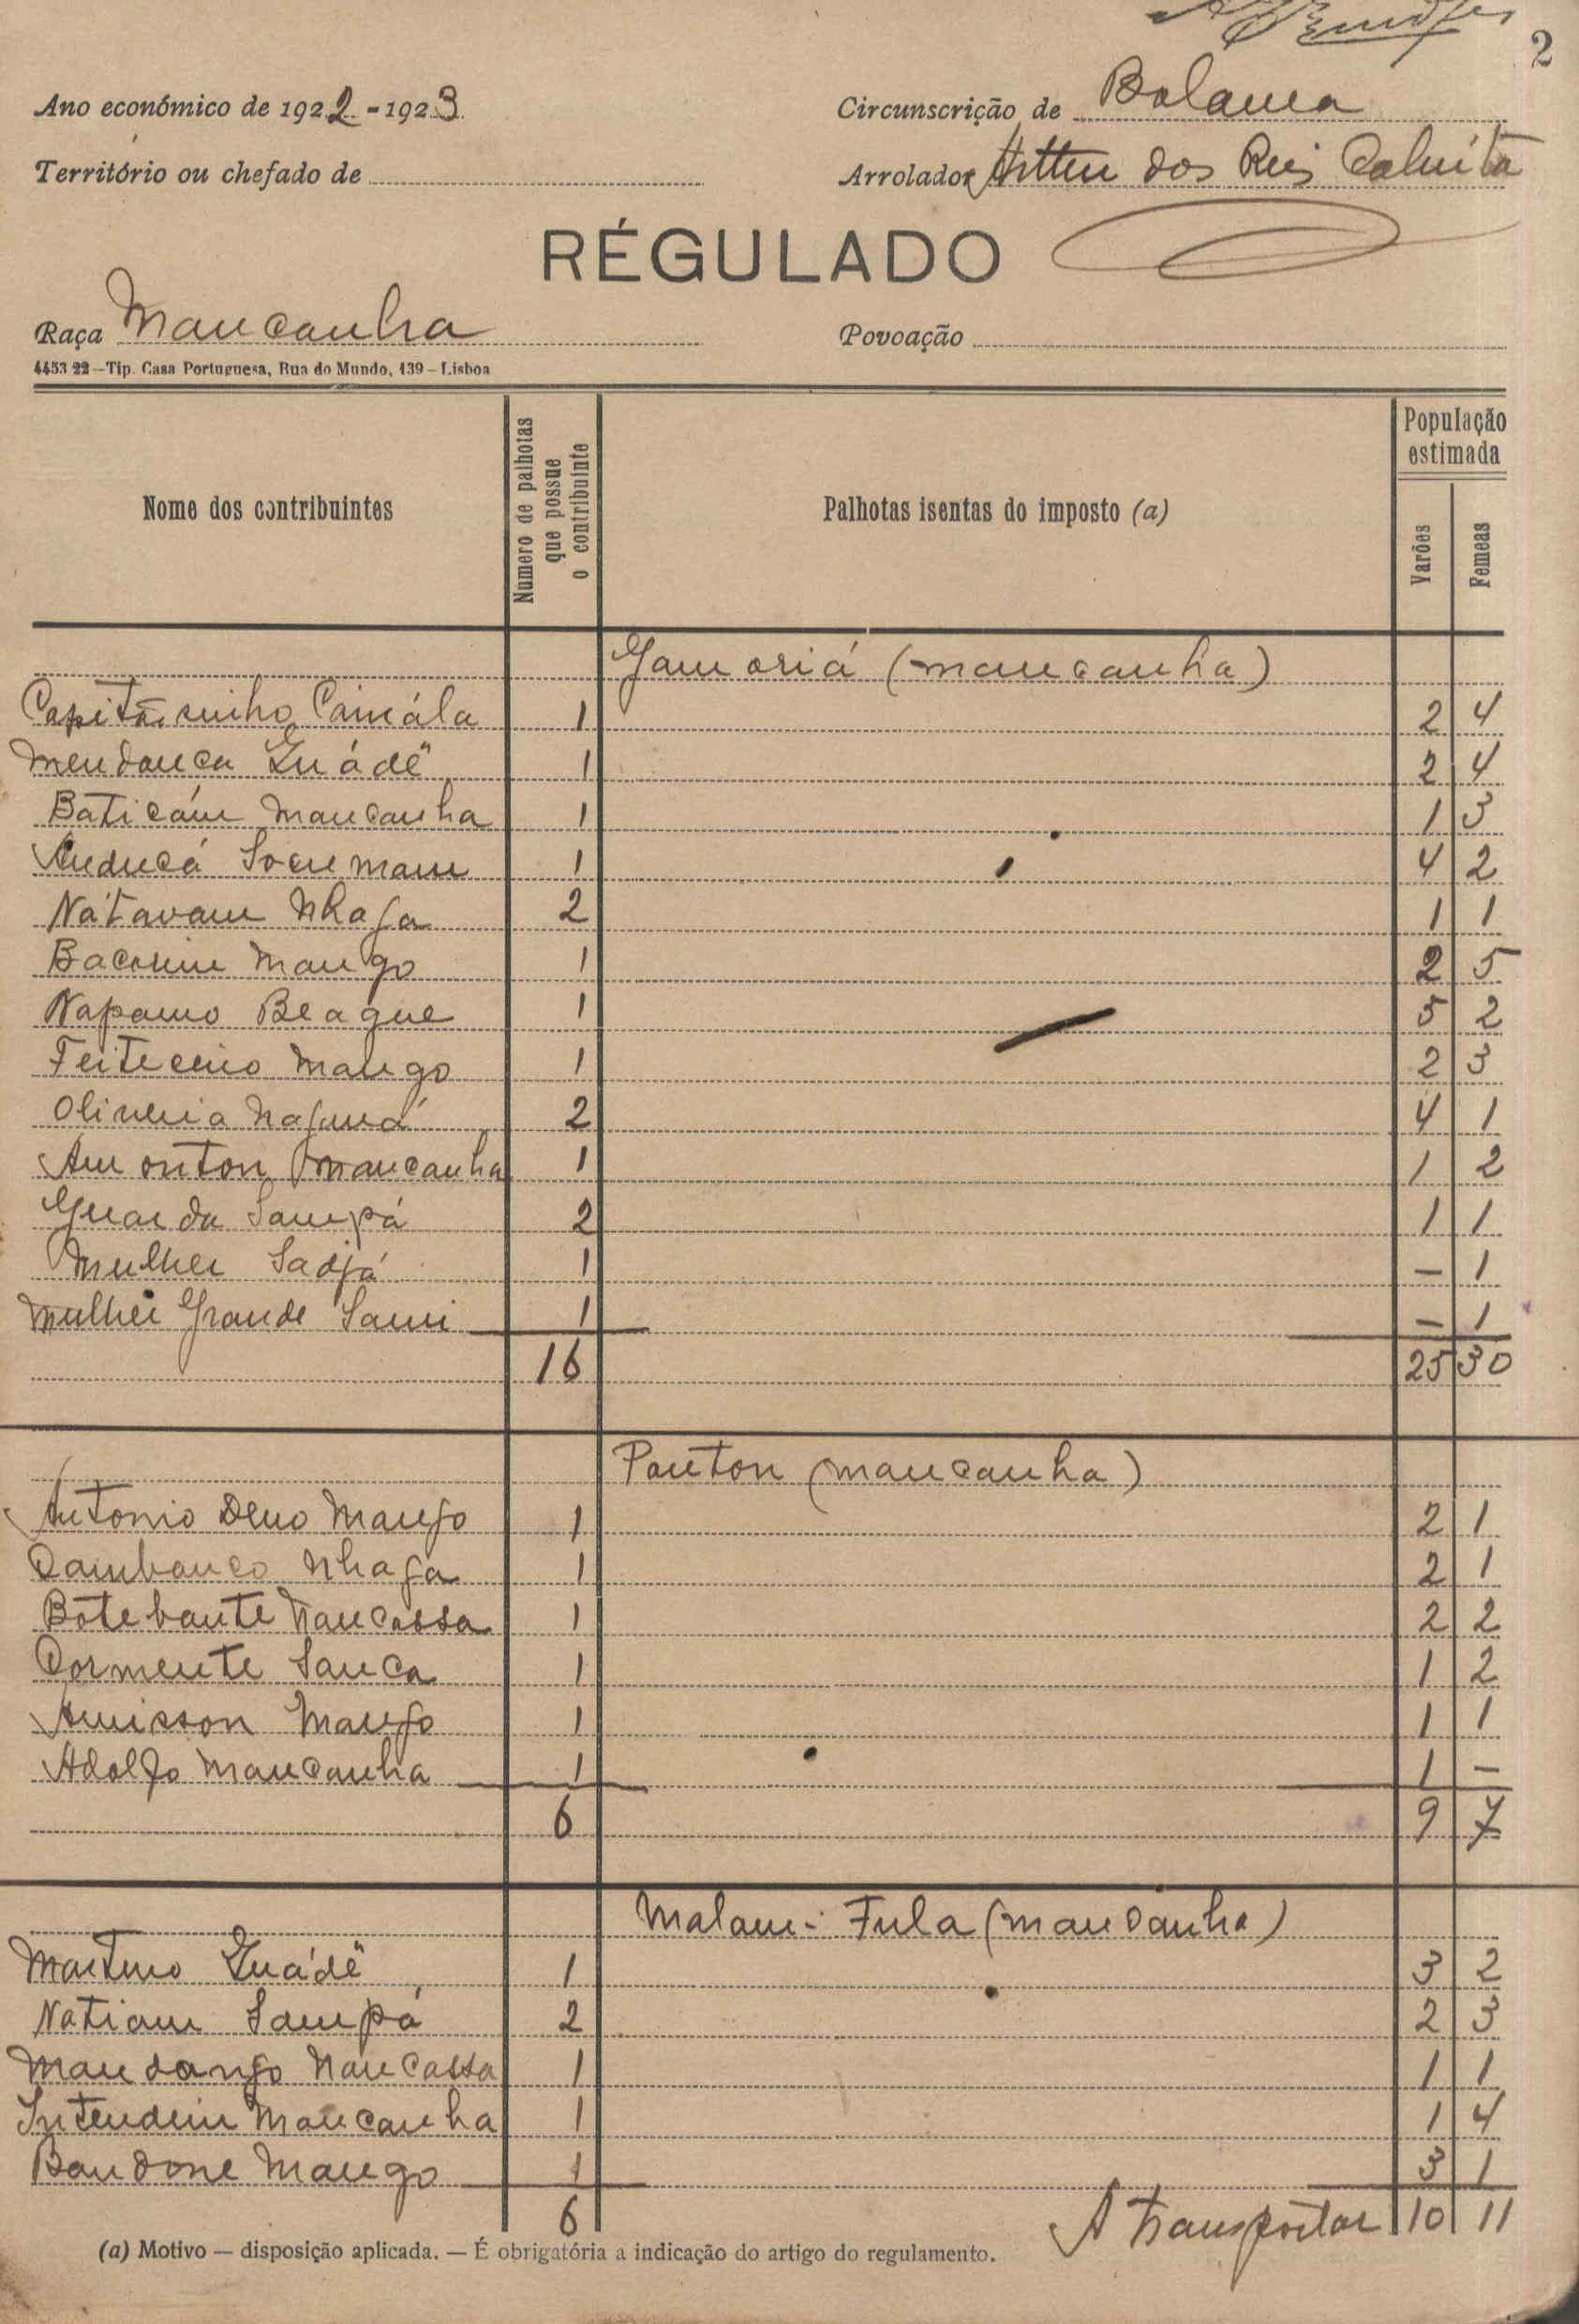 2
Ano económico de 1922-1923
Circunscrição de Bolama
Território ou chefado de
Arrolador dos Reis
RÉGULADO
Raça Mancanha
Povoação
4453 22—Tip. Casa Portuguesa, Rua do Mundo, 139—Lisboa
Nome dos contribuintes
Numero de palhotas que possue o contribuinte
Palhotas isentas do imposto (a)
População estimada
Varões
Femeas
Gam oriá (mancanha)
Capitãosinho 1 2 4
Mendonca Guádê 1 2 4
Baticám Mancanha 1 1 3
1 4 2
Natavam Nhaga 2 1 1
Mango 1 2 5
Napamo Beague 1 5 2
Feiteceiro Mango 1 2 3
Oliveira 2 4 1
Am onton Mancanha 1 1 2
Guarda Sampá 2 1 1
Mulher Sadjá 1 - 1
Mulher Grande Sami 1 - 1
16 25 30
Panton (mancanha)
Antonio Deno Mango 1 2 1
Cambanco Nhaga 1 2 1
Botebante Nancassa 1 2 2
Dormente Sanca 1 1 2
Amisson Mango 1 1 1
Adolfo Mancanha 1 1 -
6 9 7
Malam-Fula (mancanha)
Martino Guádê 1 3 2
Natiam Sampá 2 2 3
Mandongo Nancassa 1 1 1
Intendim Mancanha 1 1 4
Bandone Mango 1 3 1
6 A transportar 10 11
(a) Motivo — disposição aplicada. — É obrigatória a indicação do artigo do regulamento.